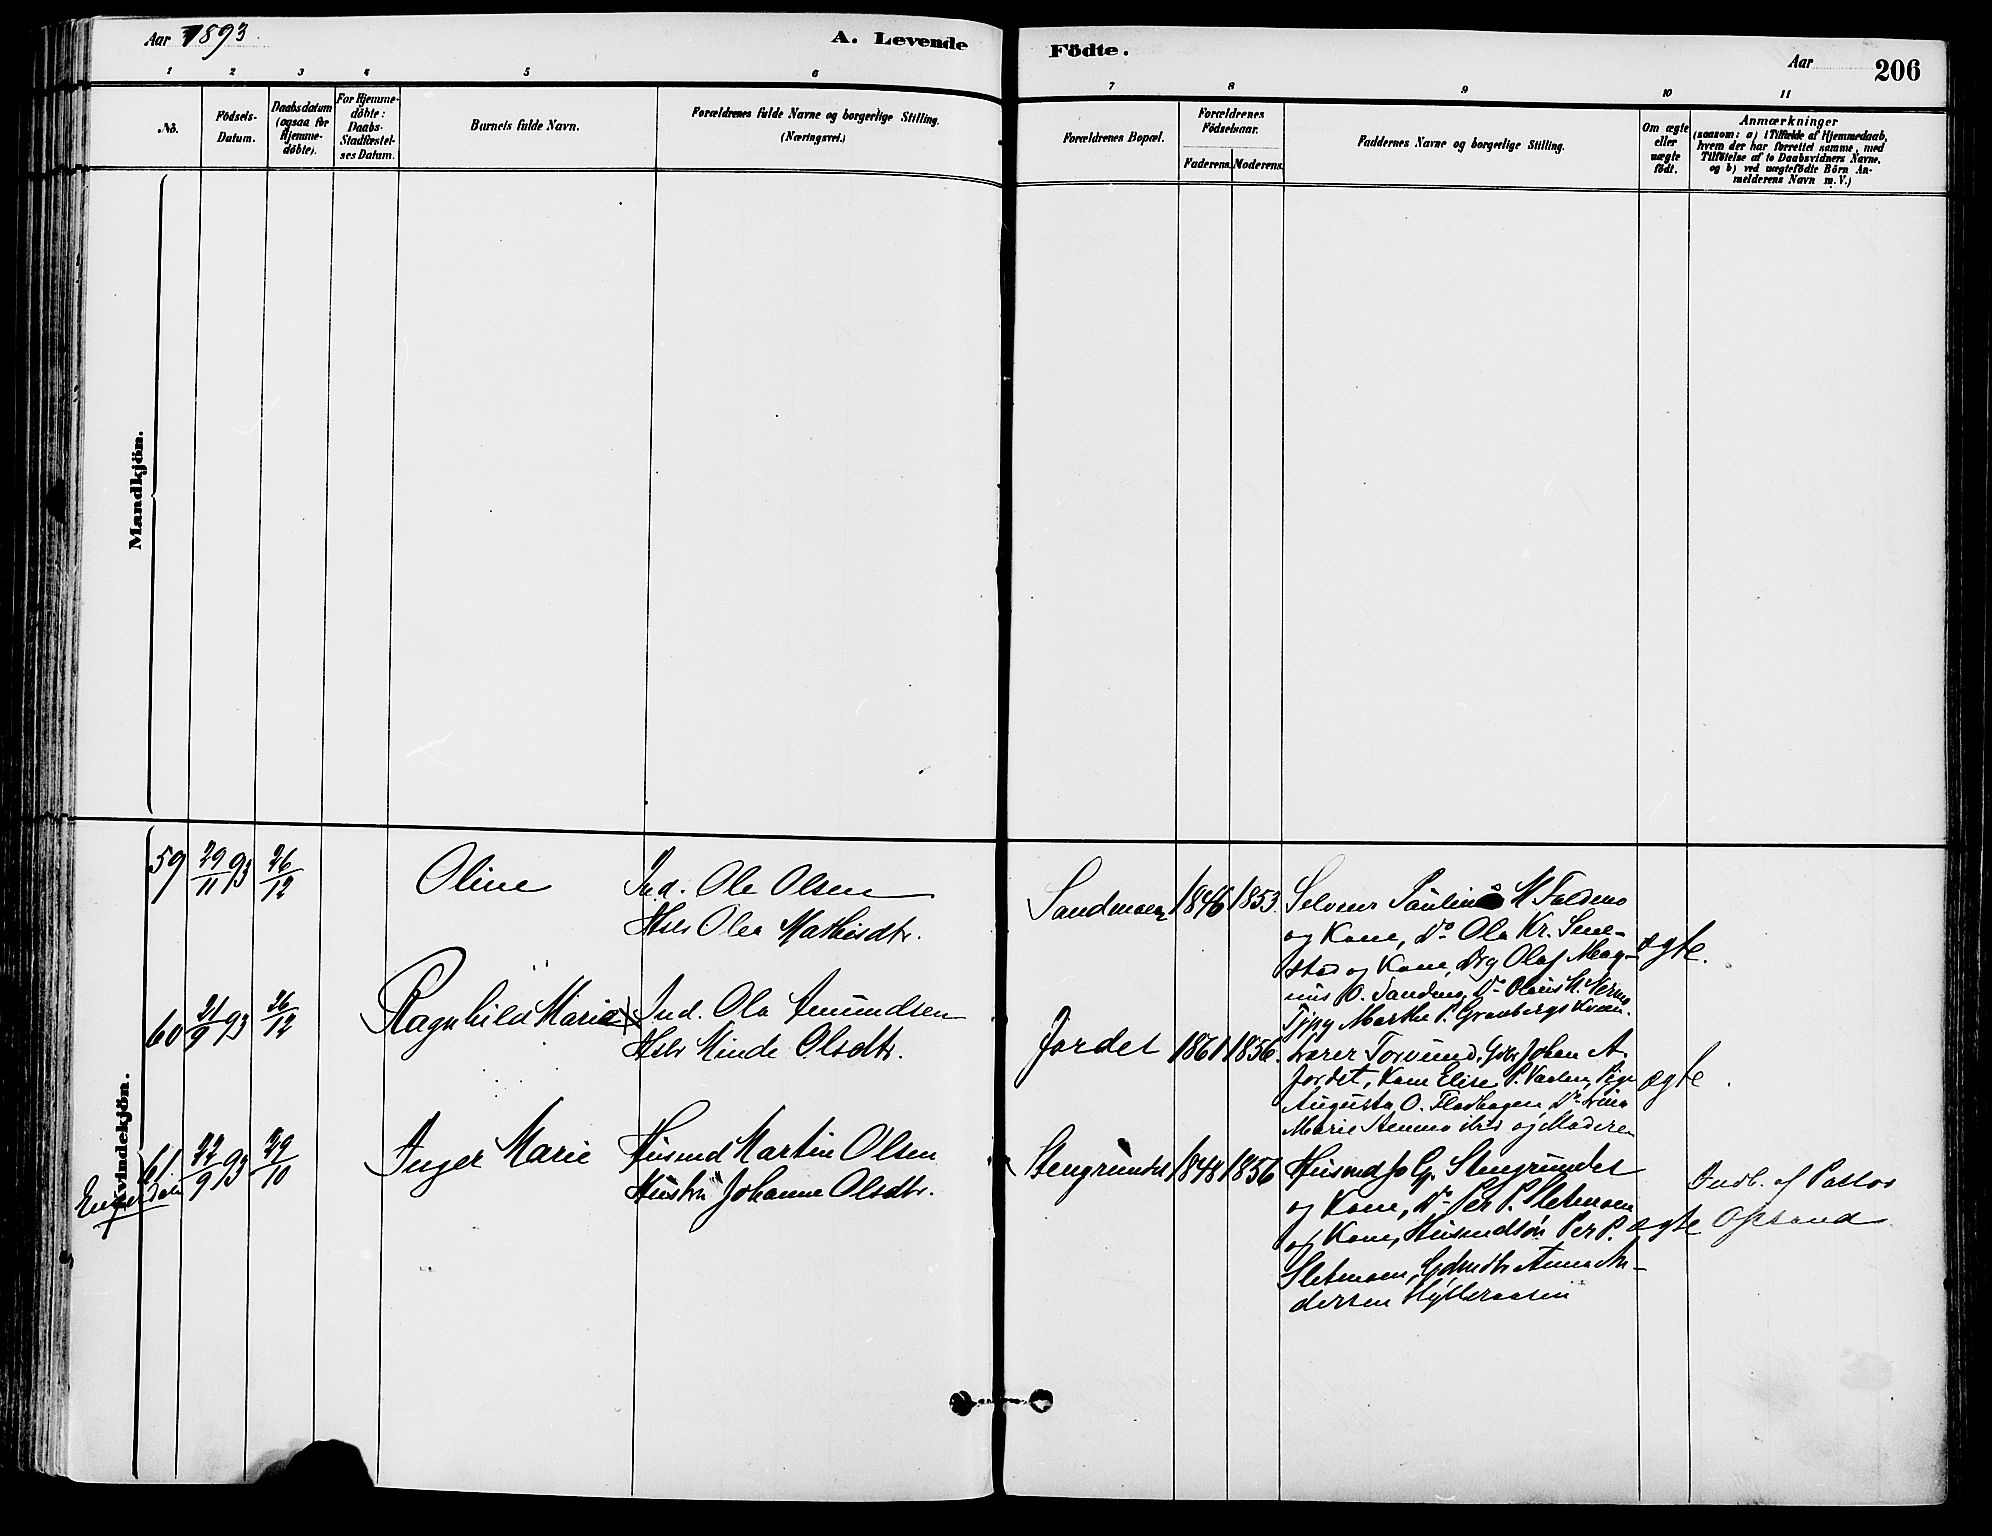 Aar 1893
A. Levende
Födte.
Aar
206
1 2 3 4 5 6 7 8 9 10 11
No.
Födsels-
Datum.
Daabsdatum
(ogsaa for
Hjemme-
döbte).
For Hjemme-
döbte:
Daabs-
Stadfæstel-
ses Datum.
Barnets fulde Navn.
Forældrenes fulde Navne og borgerlige Stilling.
(Næringsvei.)
Forældrenes Bopæl.
Forældrenes
Födselsaar.
Faderens.
Moderens.
Faddernes Navne og borgerlige Stilling.
Om ægte
eller
uægte
födt.
Anmærkninger
(saasom: a) i Tilfælde af Hjemmedaab,
hvem der har forrettet samme, med
Tilföielse af to Daabsvidners Navne,
og b) ved uægtefödte Börn An-
melderens Navn m. V.)
Mandkjön.
Kvindekjön.
59
29/11 93
26/12
Oline
Ind. Ole Olsen
Hstr Olea Mathisdtr.
Sandmoen
1846
1853.
Selveier Paulinus M
og Kone, Do Ola Kr. Sene-
stad og Kone, Drg Olaf Mag-
nus O. Sandmo, Do
Marthe P. Gravbergs
ægte.
60
21/9 93
26/12
Ragnhild Marie
Ind. Ola Amundsen
Hstr Minde Olsdtr.
Jordet
1861
1856.
Lærer Torvund, Johan A.
Jordet, Kone Elise P. Pige
Augusta O. Flodhagen, Do
Marie og Moderen
ægte.
Engerdalen
61
22/9 93
29/10
Inger Marie
Husmd Martin Olsen
Hustru Johanne Olsdtr.
Stengrundet
1848
1856
Husmd Jo G. Stengrundet
og Kone, Do Per P. Sletmoen
og Kone, Husmdsön Per P.
Sletmoen, Gdmdtr Anne An-
dersen Hylleraasen
ægte
Indb. af Pastor
Opsand